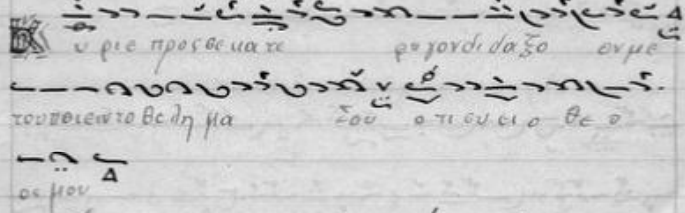 Κυριε προς σε κατε φυγον διδαξο ον με
του ποιειν το θε λη μα σου ο τι συ ει ο θε ο
ος μου